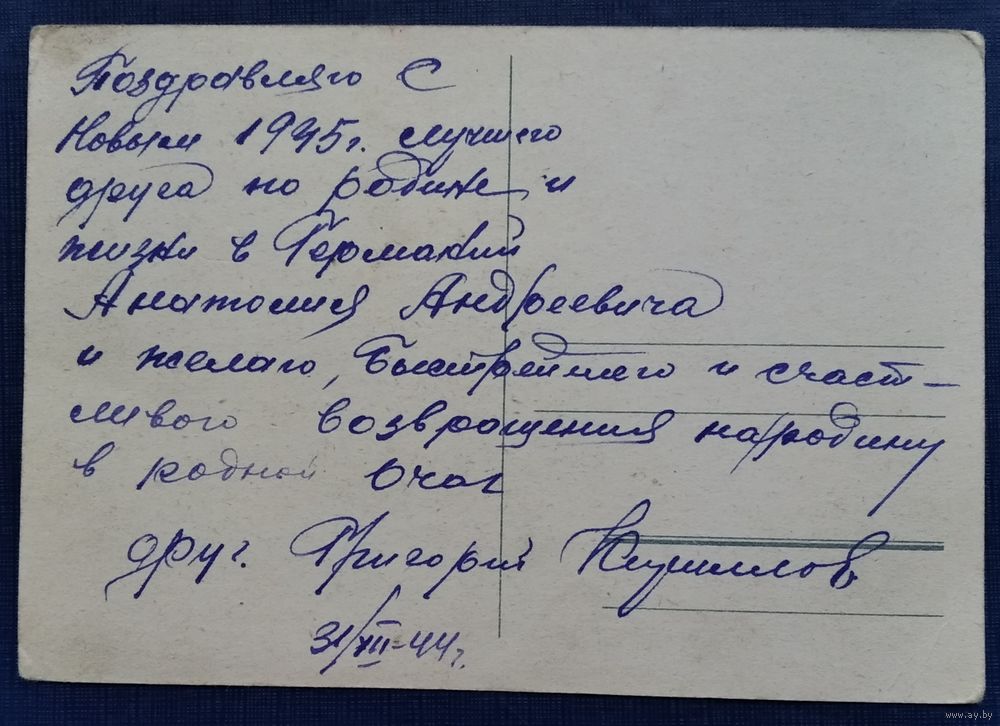 Поздравляю С
Новым 1945г. лучшего
друга по родине и
жизни в Германий
Анатолия Андреевича
и желаю, Быстрейшего и счаст-
ливого возвращения на родину
в родной очаг
друг. Григорий Кириллов
31/XII-44г.
www.ay.by